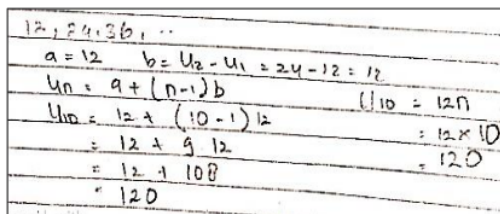 12, 24, 36, ..
a = 12   b = U2 - U1 = 24 - 12 = 12
Un = a + (n-1)b   U10 = 12n
U10 = 12 + (10 - 1) 12   = 12 × 10
= 12 + 9 . 12   = 120
= 12 + 108
= 120